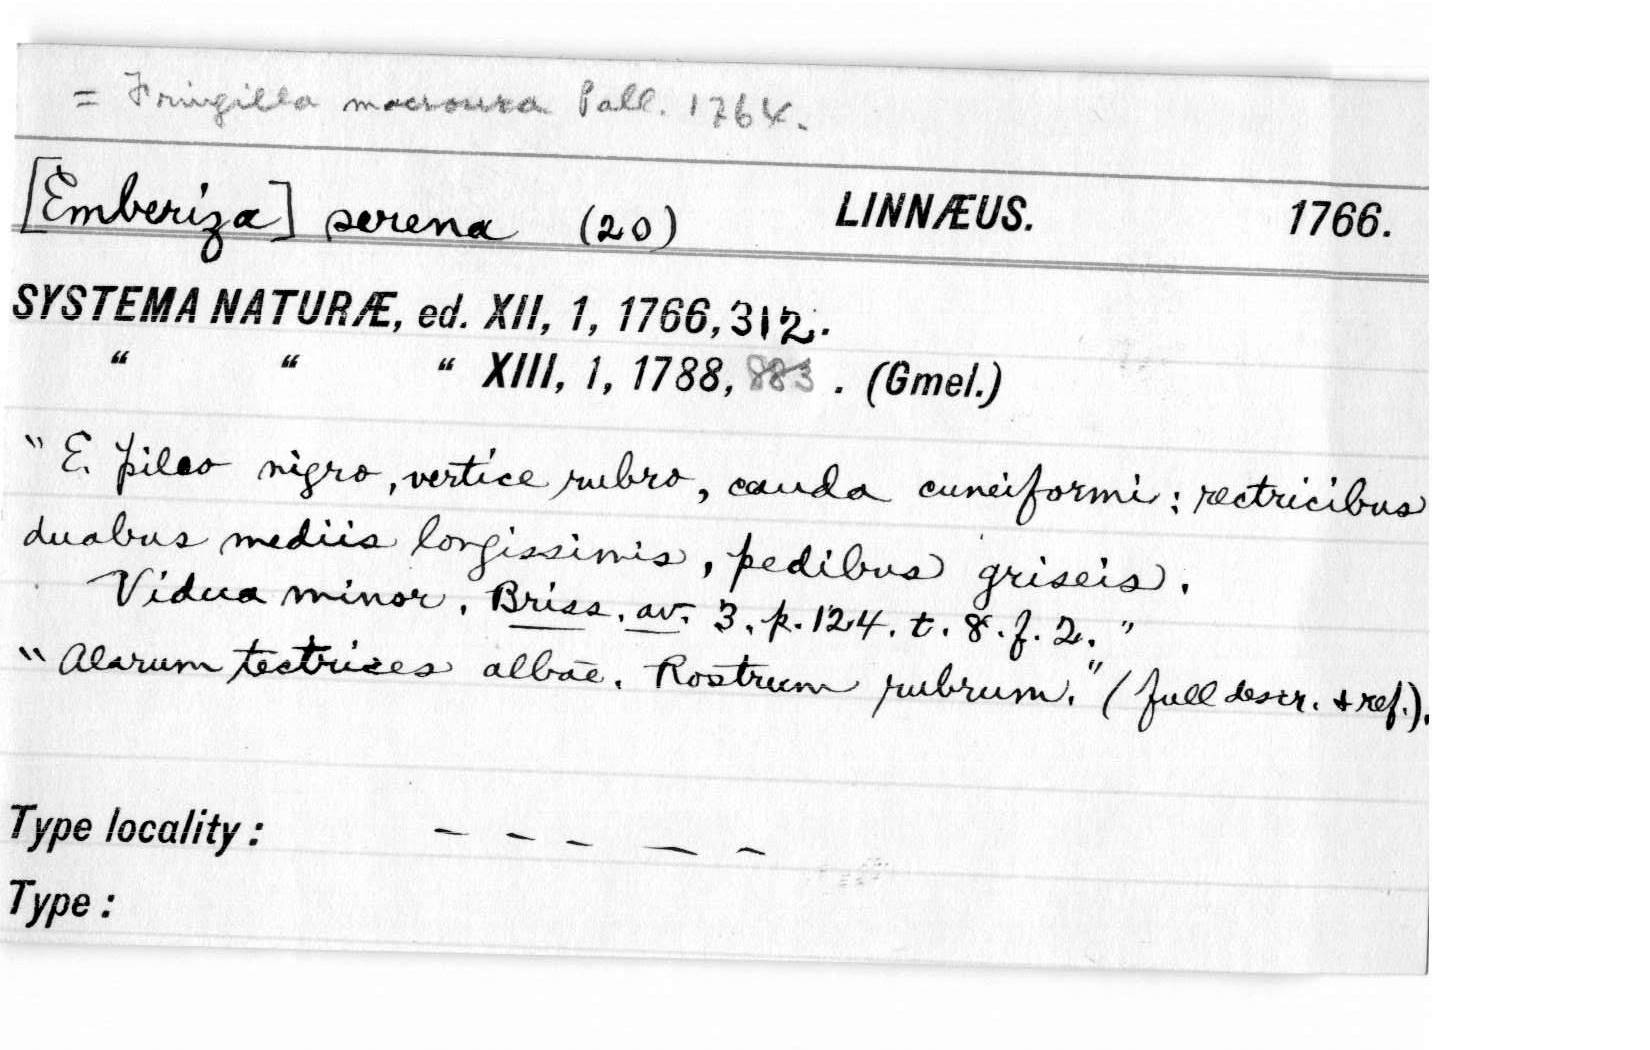 = Fringilla macroura Pall. 1764.
[Emberiza] serena (20) LINNÆUS. 1766.
SYSTEMA NATURÆ, ed. XII, 1, 1766, 312.
" " " XIII, 1, 1788, 883. (Gmel.)
"E. pileo nigro, vertice rubro, cauda cuneiformi; rectricibus
duabus mediis longissimis, pedibus griseis.
Vidua minor. Briss. av. 3. p. 124. t. 8. f. 2."
"Alarum tectrices albae. Rostrum rubrum." (full descr. & ref.).
Type locality: – – – – –
Type: